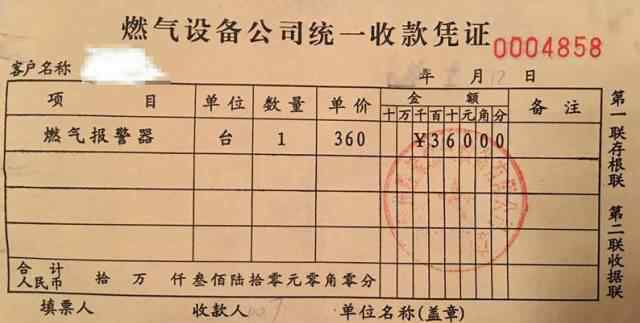 燃气设备公司统一收款凭证 0004858
客户名称 年 月 12 日
项 目 单位 数量 单价 金 额 备 注
十 万 千 百 十 元 角 分
燃气报警器 台 1 360 ¥36000
合计人民币 拾 万 仟 叁佰陆拾零元零角零分
填票人 收款人 单位名称(盖章)
第一联存根联 第二联收据联